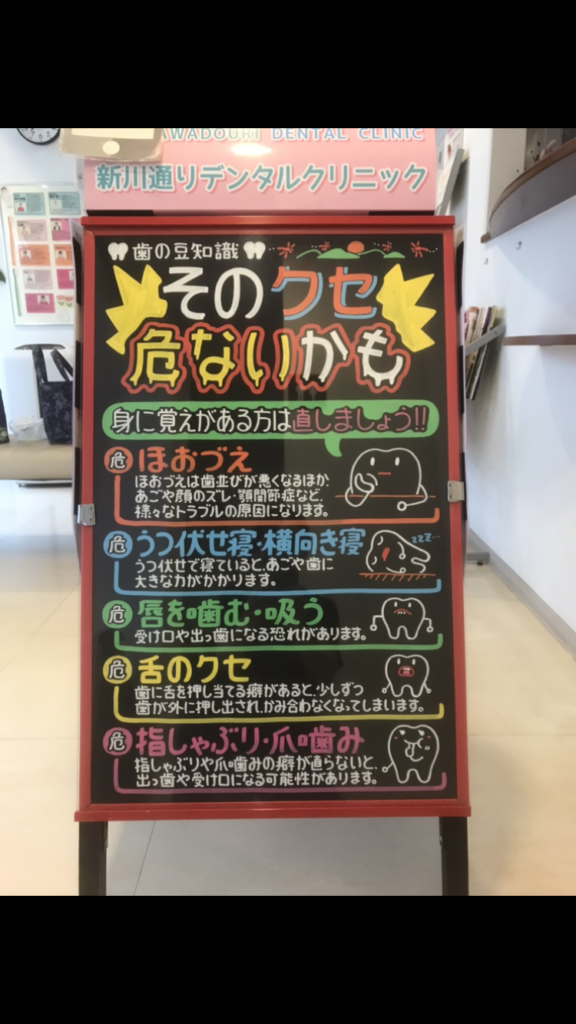 AWADOURI DENTAL CLINIC
新川通りデンタルクリニック
歯の豆知識
そのクセ
危ないかも
身に覚えがある方は直しましょう!!
危 ほおづえ
ほおづえは歯並びが悪くなるほか、
あごや顔のズレ・顎関節症など、
様々なトラブルの原因になります。
危 うつ伏せ寝・横向き寝
zzz…
うつ伏せで寝ていると、あごや歯に
大きな力がかかります。
危 唇を噛む・吸う
受け口や出っ歯になる恐れがあります。
危 舌のクセ
歯に舌を押し当てる癖があると、少しずつ
歯が外に押し出され、かみ合わなくなってしまいます。
危 指しゃぶり・爪噛み
指しゃぶりや爪噛みの癖が直らないと、
出っ歯や受け口になる可能性があります。